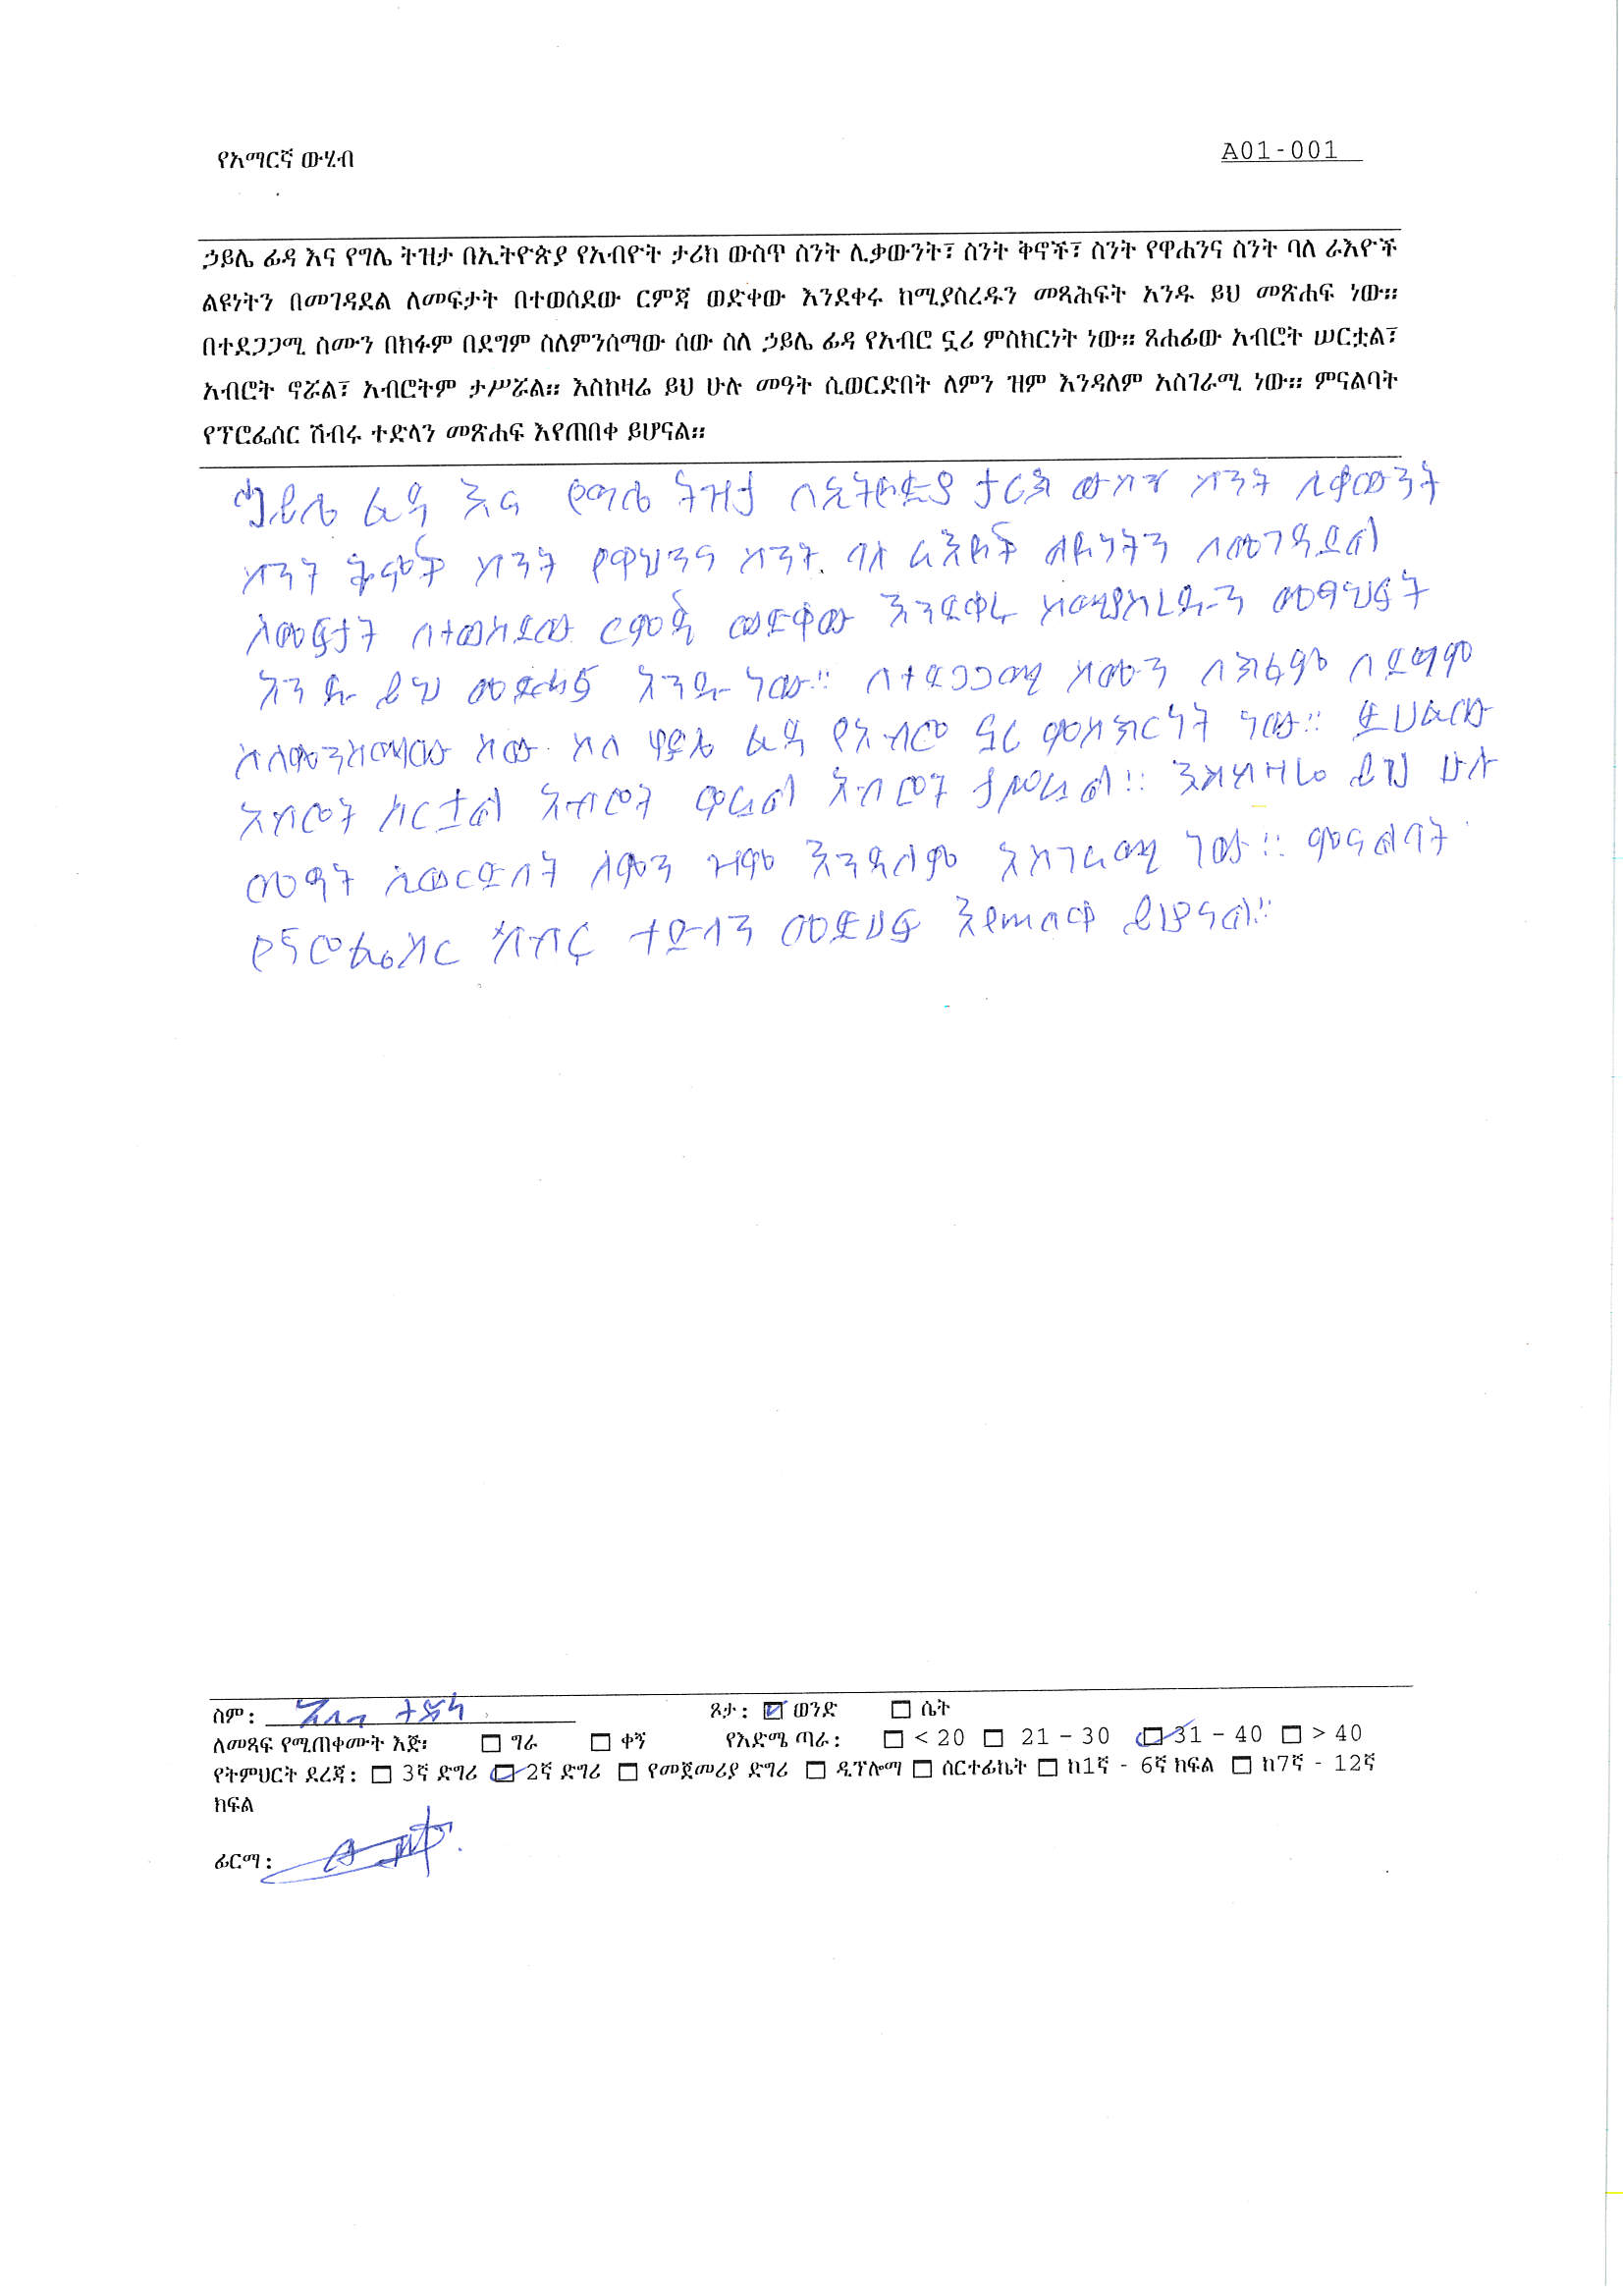 የአማርኛ ውሂብ
A01-001
ኃይሌ ፊዳ እና የግሌ ትዝታ በኢትዮጵያ የአብዮት ታሪክ ውስጥ ስንት ሊቃውንት፣ ስንት ቅኖች፣ ስንት የዋሐንና ስንት ባለ ራእዮች
ልዩነትን በመገዳደል ለመፍታት በተወሰደው ርምጃ ወድቀው እንደቀሩ ከሚያስረዱን መጻሕፍት አንዱ ይህ መጽሐፍ ነው።
በተደጋጋሚ ስሙን በክፉም በደግም ስለምንሰማው ሰው ስለ ኃይሌ ፊዳ የአብሮ ኗሪ ምስክርነት ነው። ጸሐፊው አብሮት ሠርቷል፣
አብሮት ኖሯል፣ አብሮትም ታሥሯል። እስከዛሬ ይህ ሁሉ መዓት ሲወርድበት ለምን ዝም እንዳለም አስገራሚ ነው። ምናልባት
የፕሮፌሰር ሽብሩ ተድላን መጽሐፍ እየጠበቀ ይሆናል።
ኃይሌ ፊዳ እና የግሌ ትዝታ በኢትዮጵያ ታሪክ ውስጥ ስንት ሊቀውንት
ስንት ቅኖች ስንት የዋህንና ስንት ባለ ራእዮች ልዩነትን በመገዳደል
ለመፍታት በተወሰደው ርምጃ ወድቀው እንደቀሩ ከሚያስረዱን መፃህፍት
አንዱ ይህ መጽሐፍ አንዱ ነው። በተደጋጋሚ ስሙን በክፉም በደግም
ስለምንሰማው ሰው ስለ ሃይሌ ፊዳ የአብሮ ኗሪ ምስክርነት ነው። ጽሀፊው
አብሮት ሰርቷል አብሮት ኖሯል አብሮት ታሥሯል። እስከዛሬ ይህ ሁሉ
መዓት ሲወርድበት ለምን ዝም እንዳለም አስገራሚ ነው። ምናልባት
የፕሮፌሰር ሽብሩ ተድላን መጽሀፍ እየጠበቀ ይሆናል።
ስም: ተድላ ጾታ: ወንድ ሴት
ለመጻፍ የሚጠቀሙት እጅ፡ ግራ ቀኝ የእድሜ ጣራ: < 20 21 – 30 31 – 40 > 40
የትምህርት ደረጃ: 3ኛ ድግሪ 2ኛ ድግሪ የመጀመሪያ ድግሪ ዲፕሎማ ሰርተፊኬት ከ1ኛ - 6ኛ ክፍል ከ7ኛ - 12ኛ
ክፍል
ፊርማ: